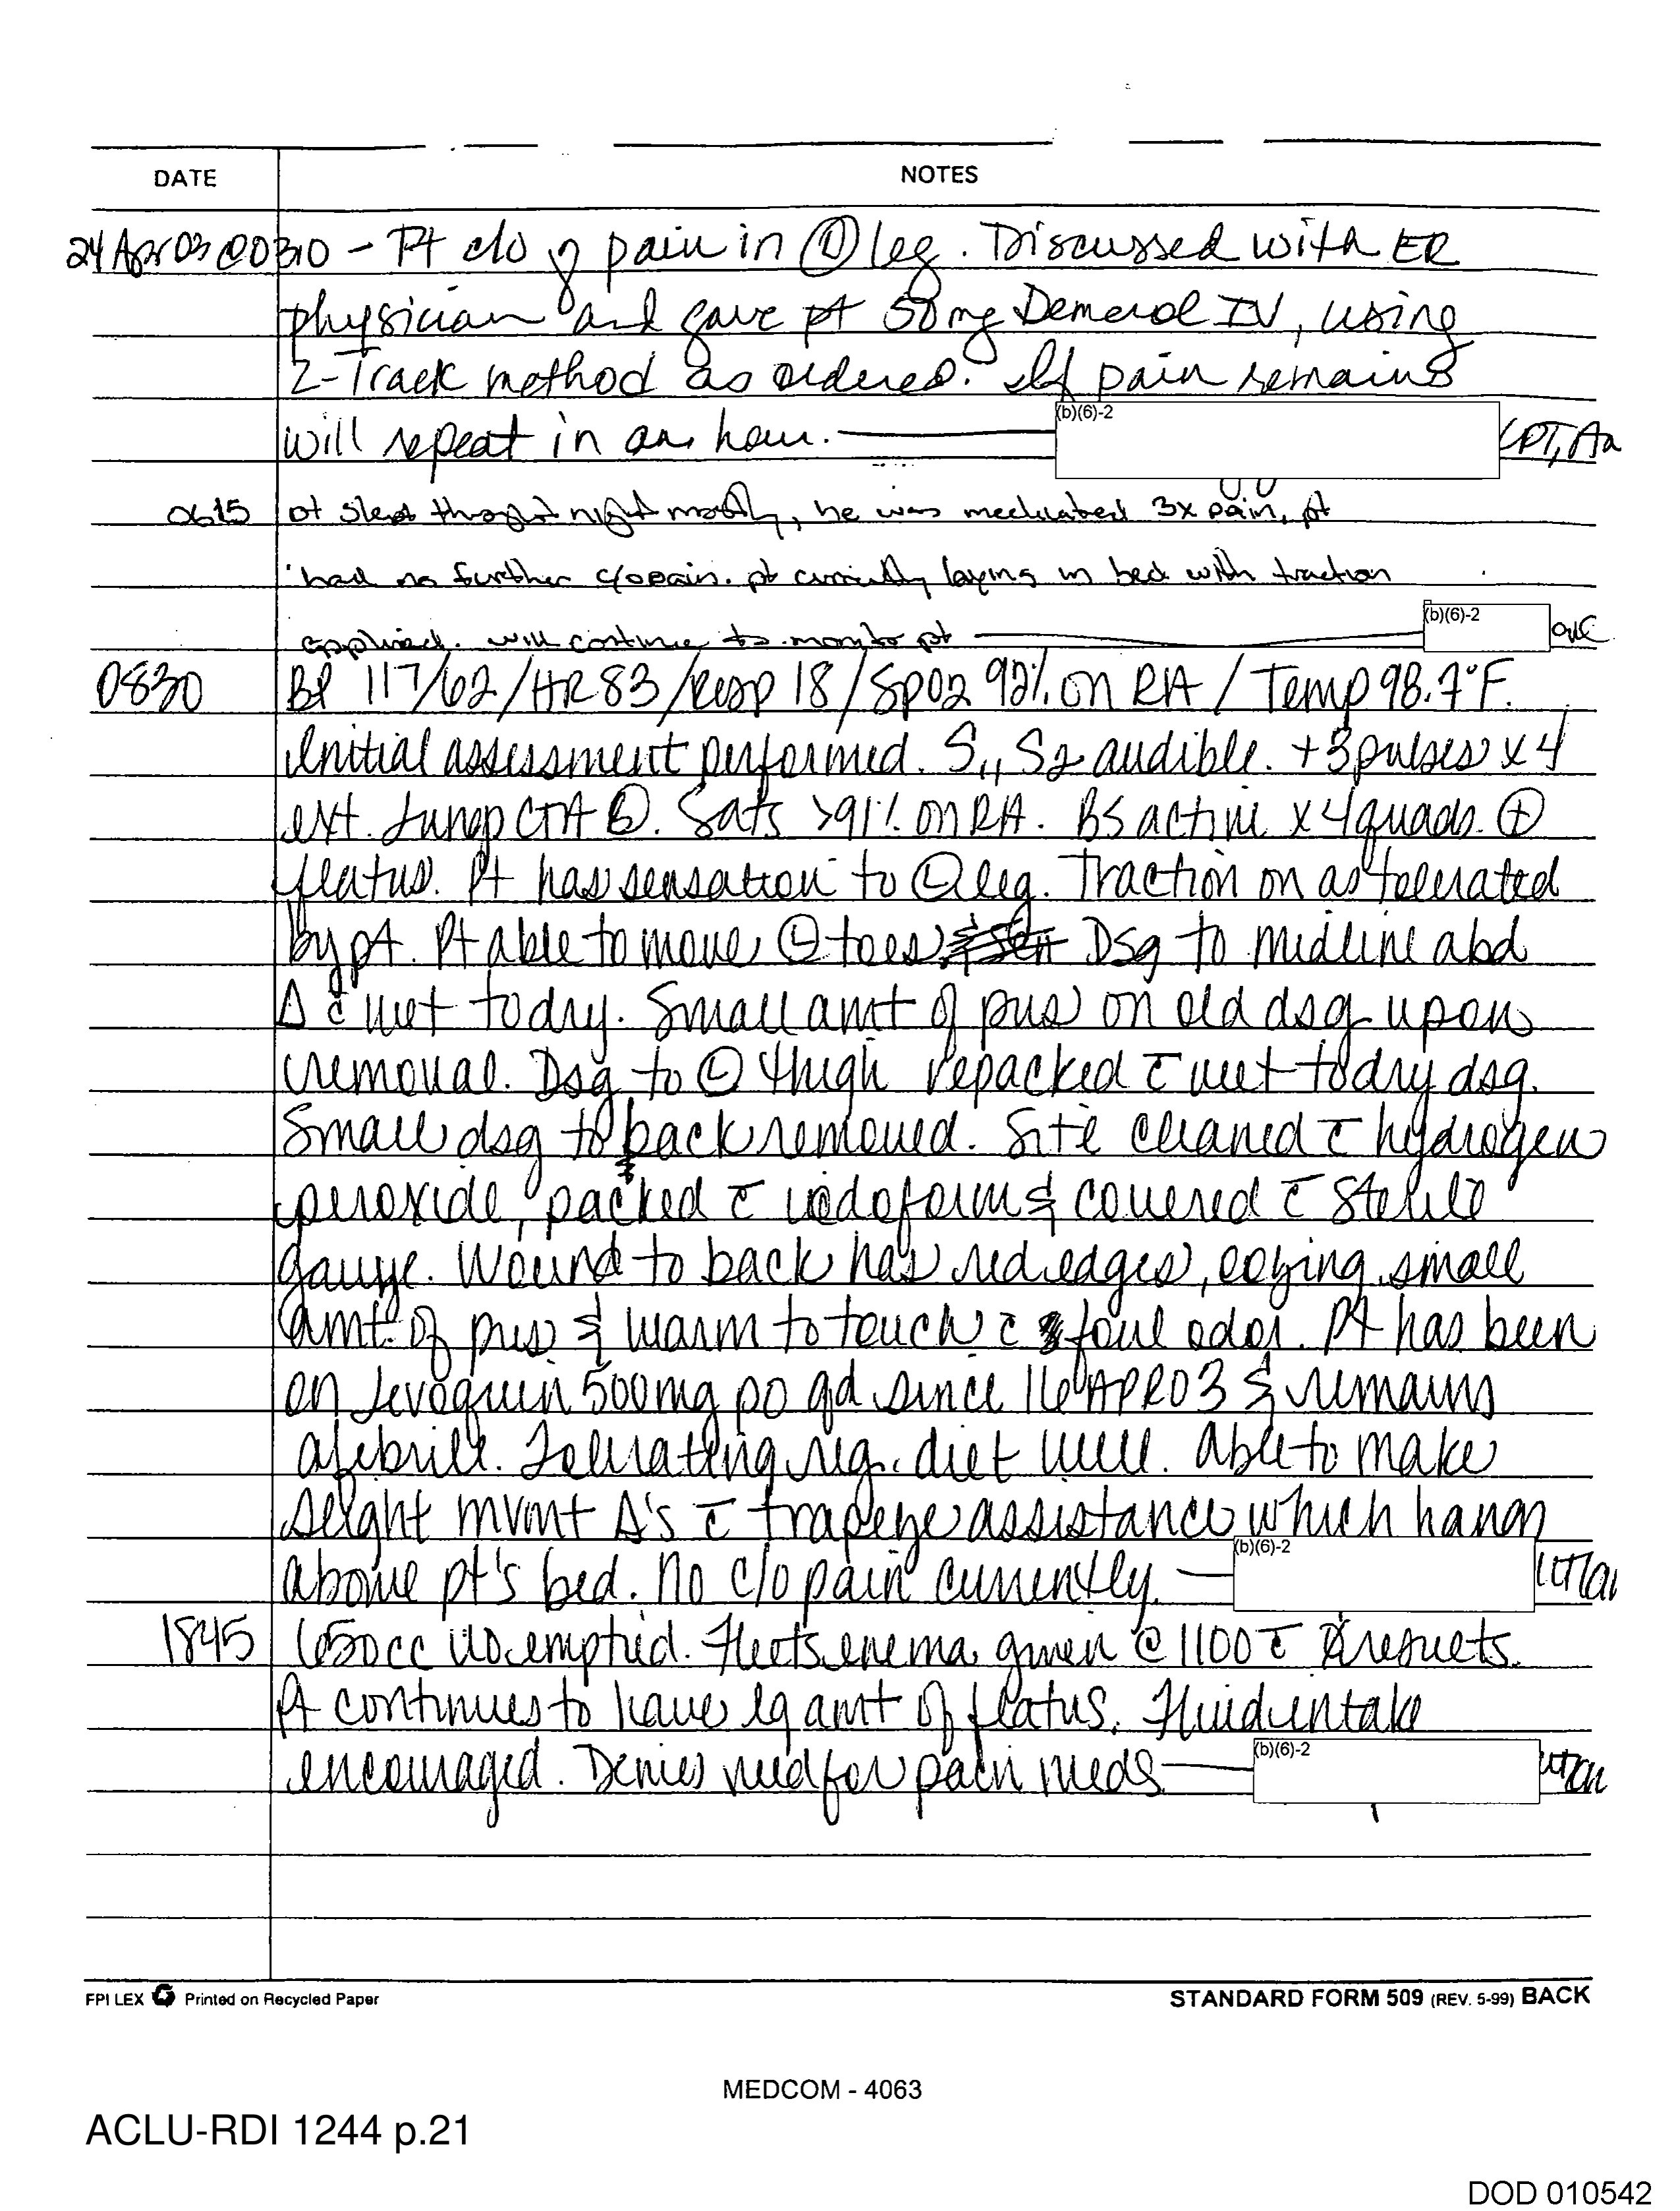 DATE NOTES
24 Apr 03 @ 0310 - Pt c/o of pain in Ⓛ leg. Discussed with ER
physician and gave pt 50mg Demerol IV, using
Z-Track method as ordered. If pain remains
will repeat in an hour.
(b)(6)-2
CPT, An
0615 pt slept through night mostly, he was medicated 3x pain, pt
had no further c/o pain. pt currently laying in bed with traction
applied. will continue to monitor pt
(b)(6)-2
0830 BP 117/62/HR 83/Resp 18/SpO2 92% on RA/Temp 98.7°F.
Initial assessment performed. S1, S2 audible. +3 pulses x 4
ext. Lungs CTA Ⓑ. Sats >91% on RA. BS active x 4 quads. ⊕
flatus. Pt has sensation to Ⓛ leg. Traction on as tolerated
by pt. Pt able to move Ⓛ toes. Dsg to midline abd
Δ c̄ wet to dry. Small amt of pus on old dsg upon
removal. Dsg to Ⓛ thigh repacked c̄ wet to dry dsg.
Small dsg to back removed. Site cleaned c̄ hydrogen
peroxide, packed c̄ iodoform & covered c̄ sterile
gauze. Wound to back has red edges, oozing small
amt of pus & warm to touch c̄ foul odor. Pt has been
on Levoquin 500mg po qd since 16 APR 03 & remains
afebrile. Tolerating reg. diet well. Able to make
slight mvmt Δ's c̄ trapeze assistance which hangs
above pt's bed. No c/o pain currently.
(b)(6)-2
1845 650cc uo emptied. Fleets enema given @ 1100 c̄ results.
Pt continues to have lg amt of flatus. Fluid intake
encouraged. Denies need for pain meds
(b)(6)-2
FPI LEX Printed on Recycled Paper STANDARD FORM 509 (REV. 5-99) BACK
MEDCOM - 4063
ACLU-RDI 1244 p.21
DOD 010542